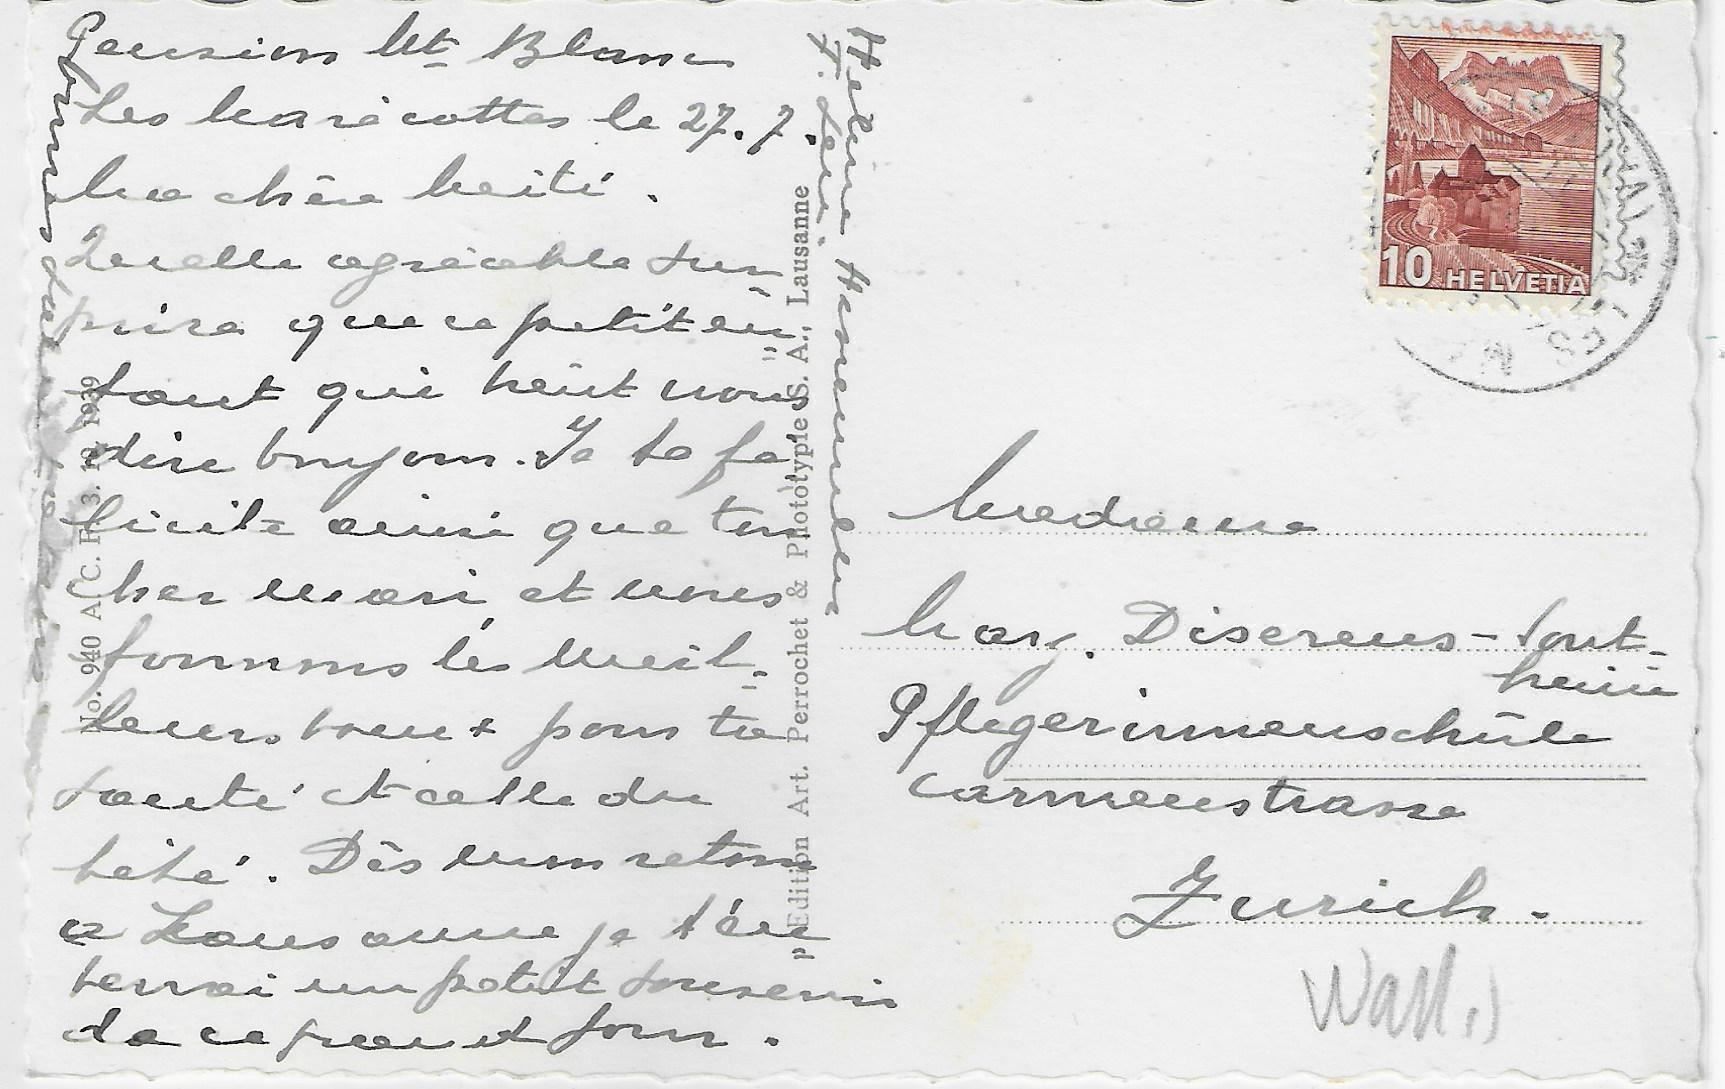 Pension Mt Blanc
Les Marécottes le 27. 7.
Ma chère Maité.
Quelle agréable sur-
prise que ce petit en-
fant qui vient nous
dire bonjour. Je te fé
licite ainsi que ton
cher mari et nous
formons les meil-
leurs vœux pour ta
santé et celle du
bébé. Dès mon retour
a Lausanne je t'en
verrai un petit souvenir
de ce grand jour.
Helene
No. 940 A C. F. 3. 10. 1939
„Edition Art. Perrochet & Phototypie S. A., Lausanne
10 HELVETIA
LES M
Madame
Marg. Diserens-Sont-
heim
Pflegerinnenschule
Carmenstrasse
Zurich.
Wall.